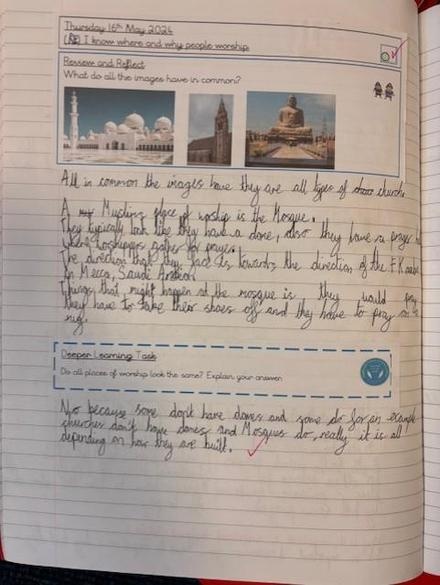 Thursday 16th May 2024
I know where and why people worship
Review and Reflect
What do all the images have in common?
All in common the images have they are all types of church
A Muslims place of worship is the Mosque.
They typically look like they have a dome, also they have a prayer
where worshippers gather for prayers.
The direction that they face is towards the direction of the Kaaba
in Mecca, Saudi Arabia
Things that might happen at the mosque is they would pray
they have to take their shoes off and they have to pray on a
rug.
Deeper Learning Task
Do all places of worship look the same? Explain your answer.
No because some don't have domes and some do for an example
churches don't have domes and Mosques do, really it is all
depending on how they are built.